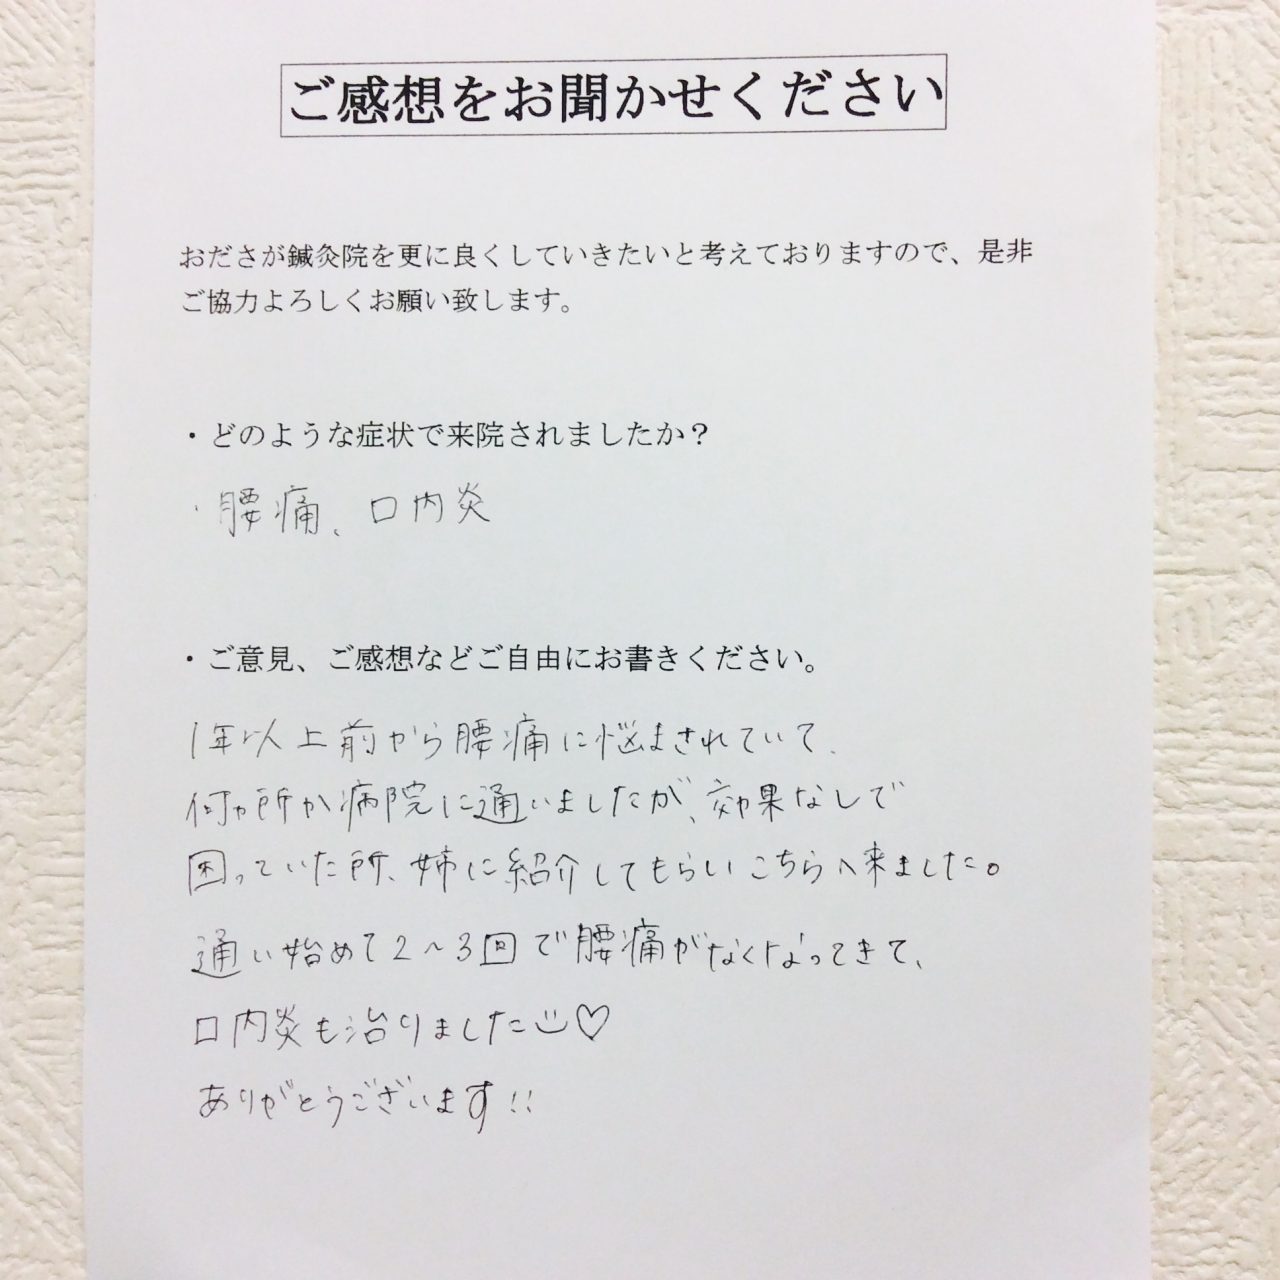 ご感想をお聞かせください
おださが鍼灸院を更に良くしていきたいと考えておりますので、是非
ご協力よろしくお願い致します。
・どのような症状で来院されましたか？
・腰痛、口内炎
・ご意見、ご感想などご自由にお書きください。
1年以上前から腰痛に悩まされていて、
何ヵ所か病院に通いましたが、効果なしで
困っていた所、姉に紹介してもらいこちらへ来ました。
通い始めて2〜3回で腰痛がなくなってきて、
口内炎も治りました☺♡
ありがとうございます!!